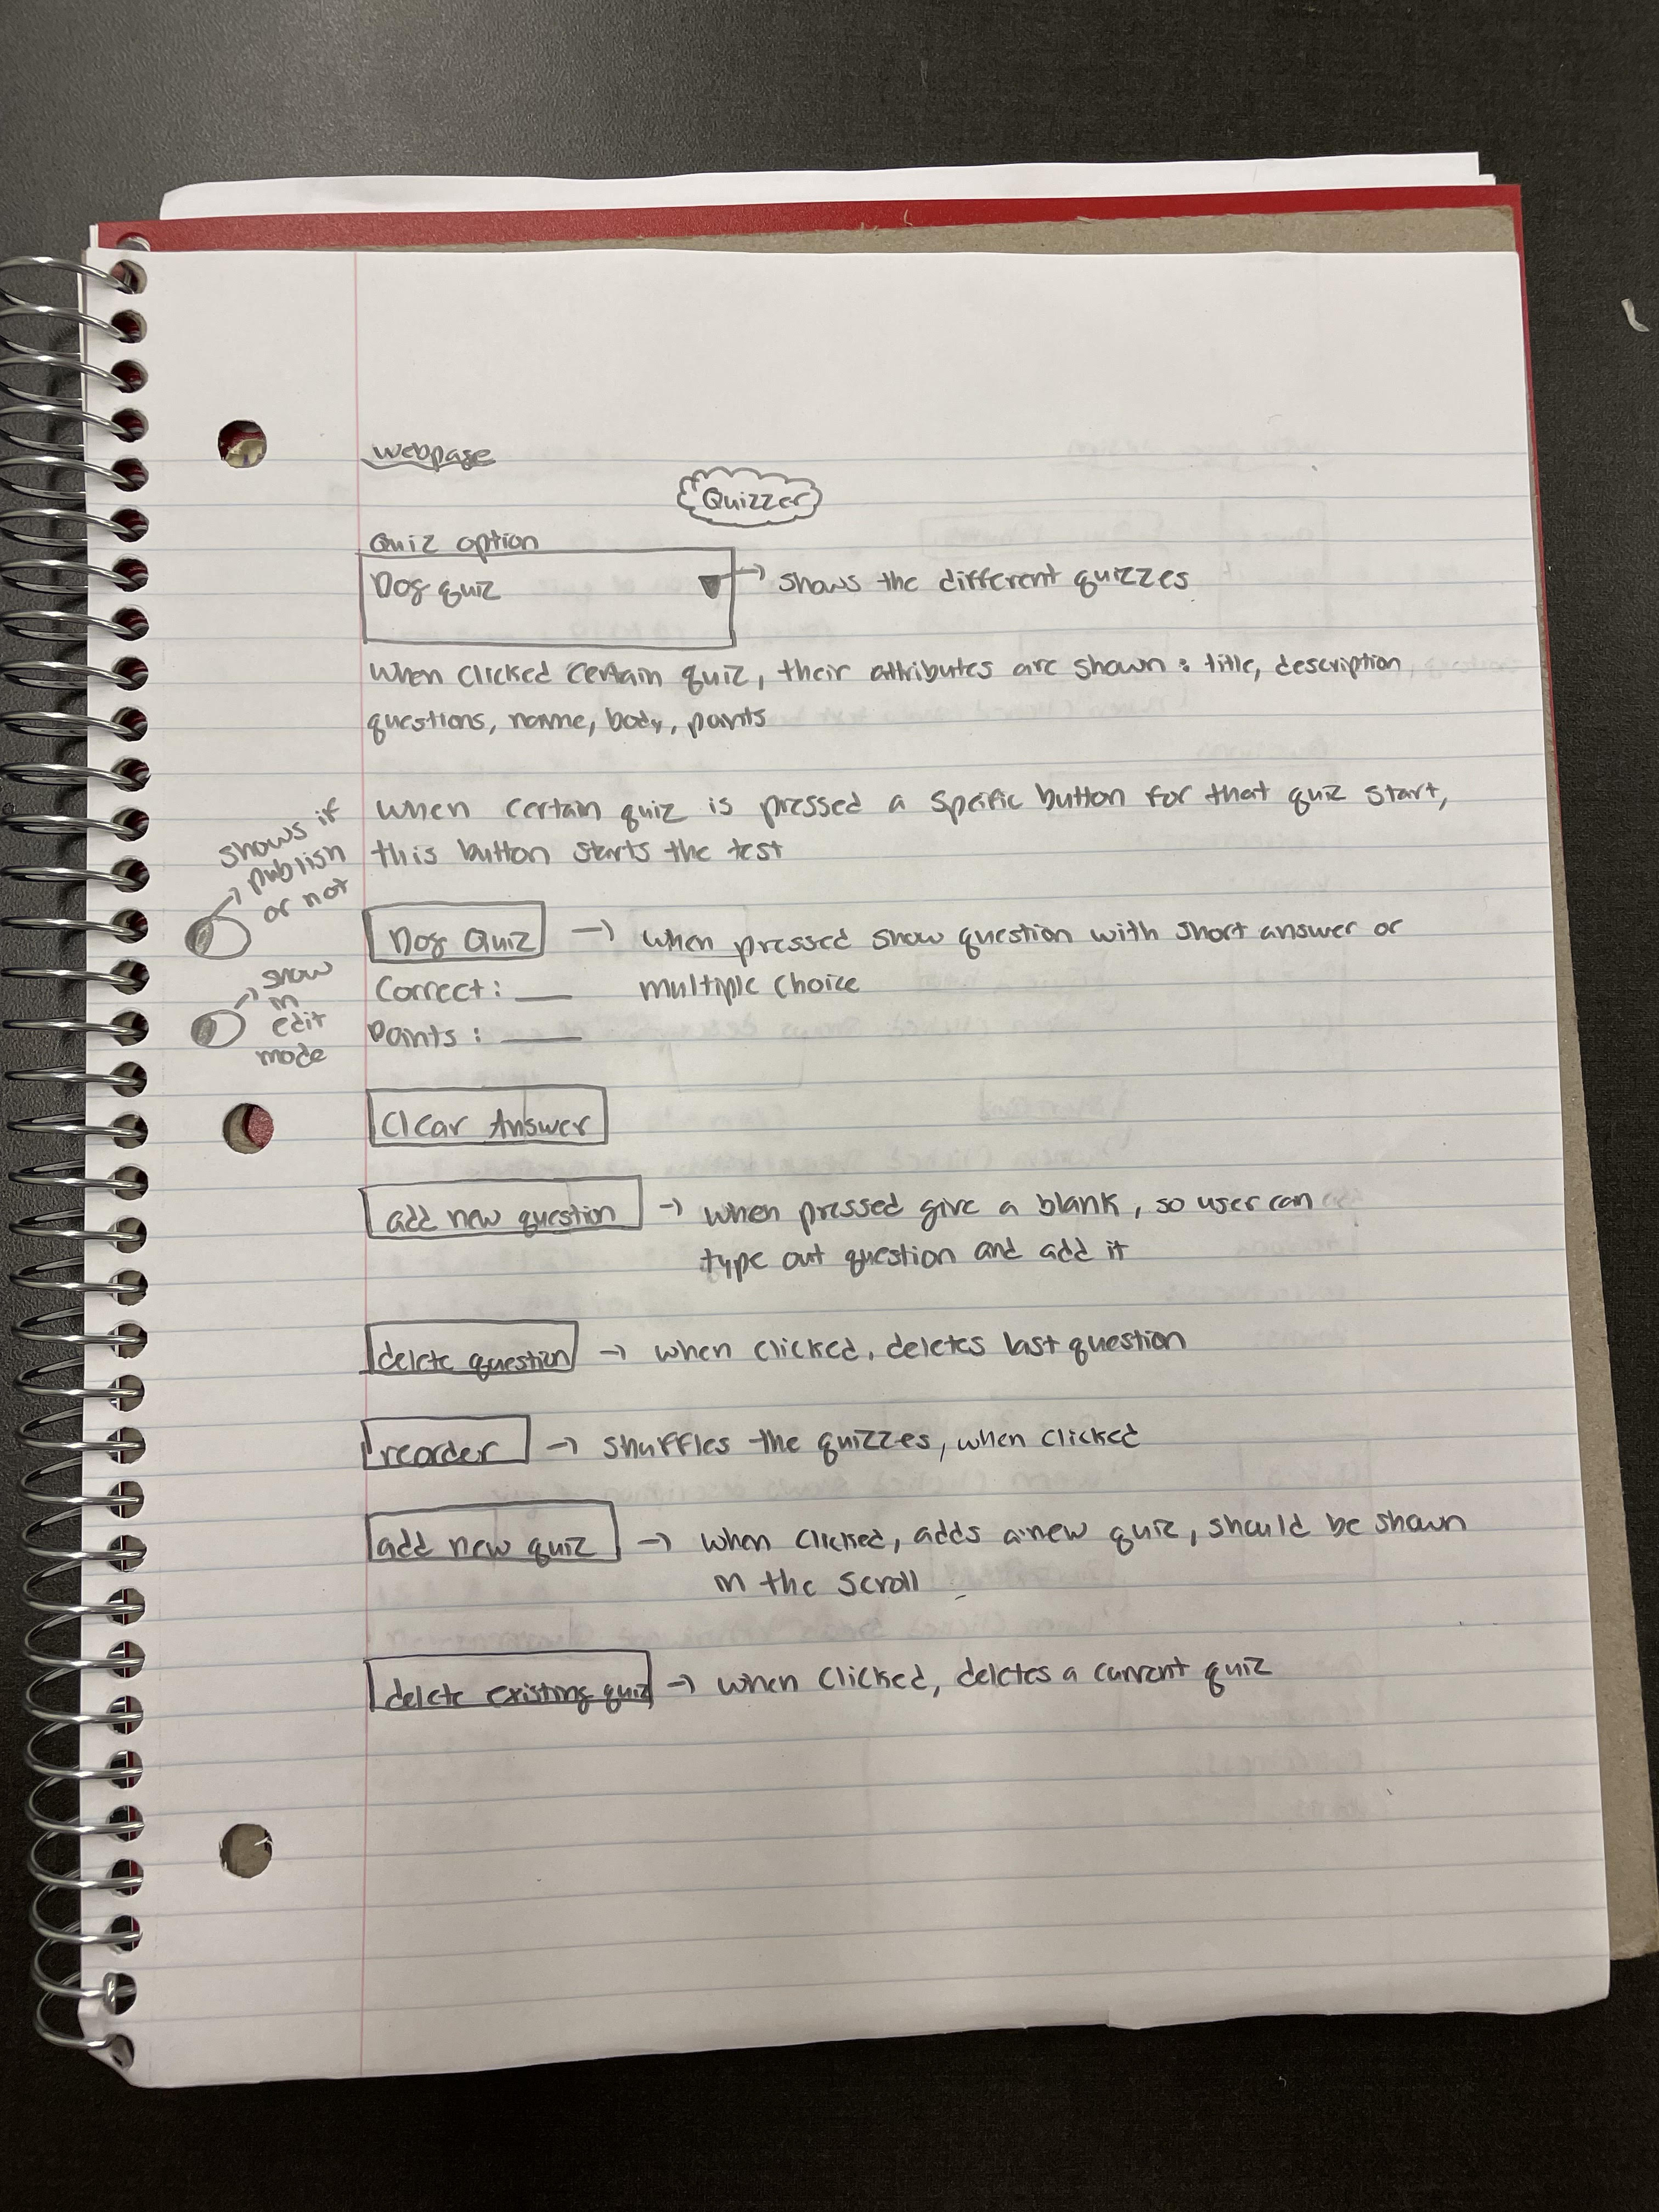 Webpage
Quizzer
Quiz option
Dog quiz
→ shows the different quizzes
when clicked certain quiz, their attributes are shown: title, description,
questions, name, body, points
when certain quiz is pressed a specific button for that quiz start,
this button starts the test
shows if
publish
or not
Dog Quiz → when pressed show question with short answer or
multiple choice
Correct: ___
Points: ___
show
in
edit
mode
Clear Answer
add new question → when pressed give a blank, so user can
type out question and add it
delete question → when clicked, deletes last question
reorder → shuffles the quizzes, when clicked
add new quiz → when clicked, adds a new quiz, should be shown
in the scroll
delete existing quiz → when clicked, deletes a current quiz